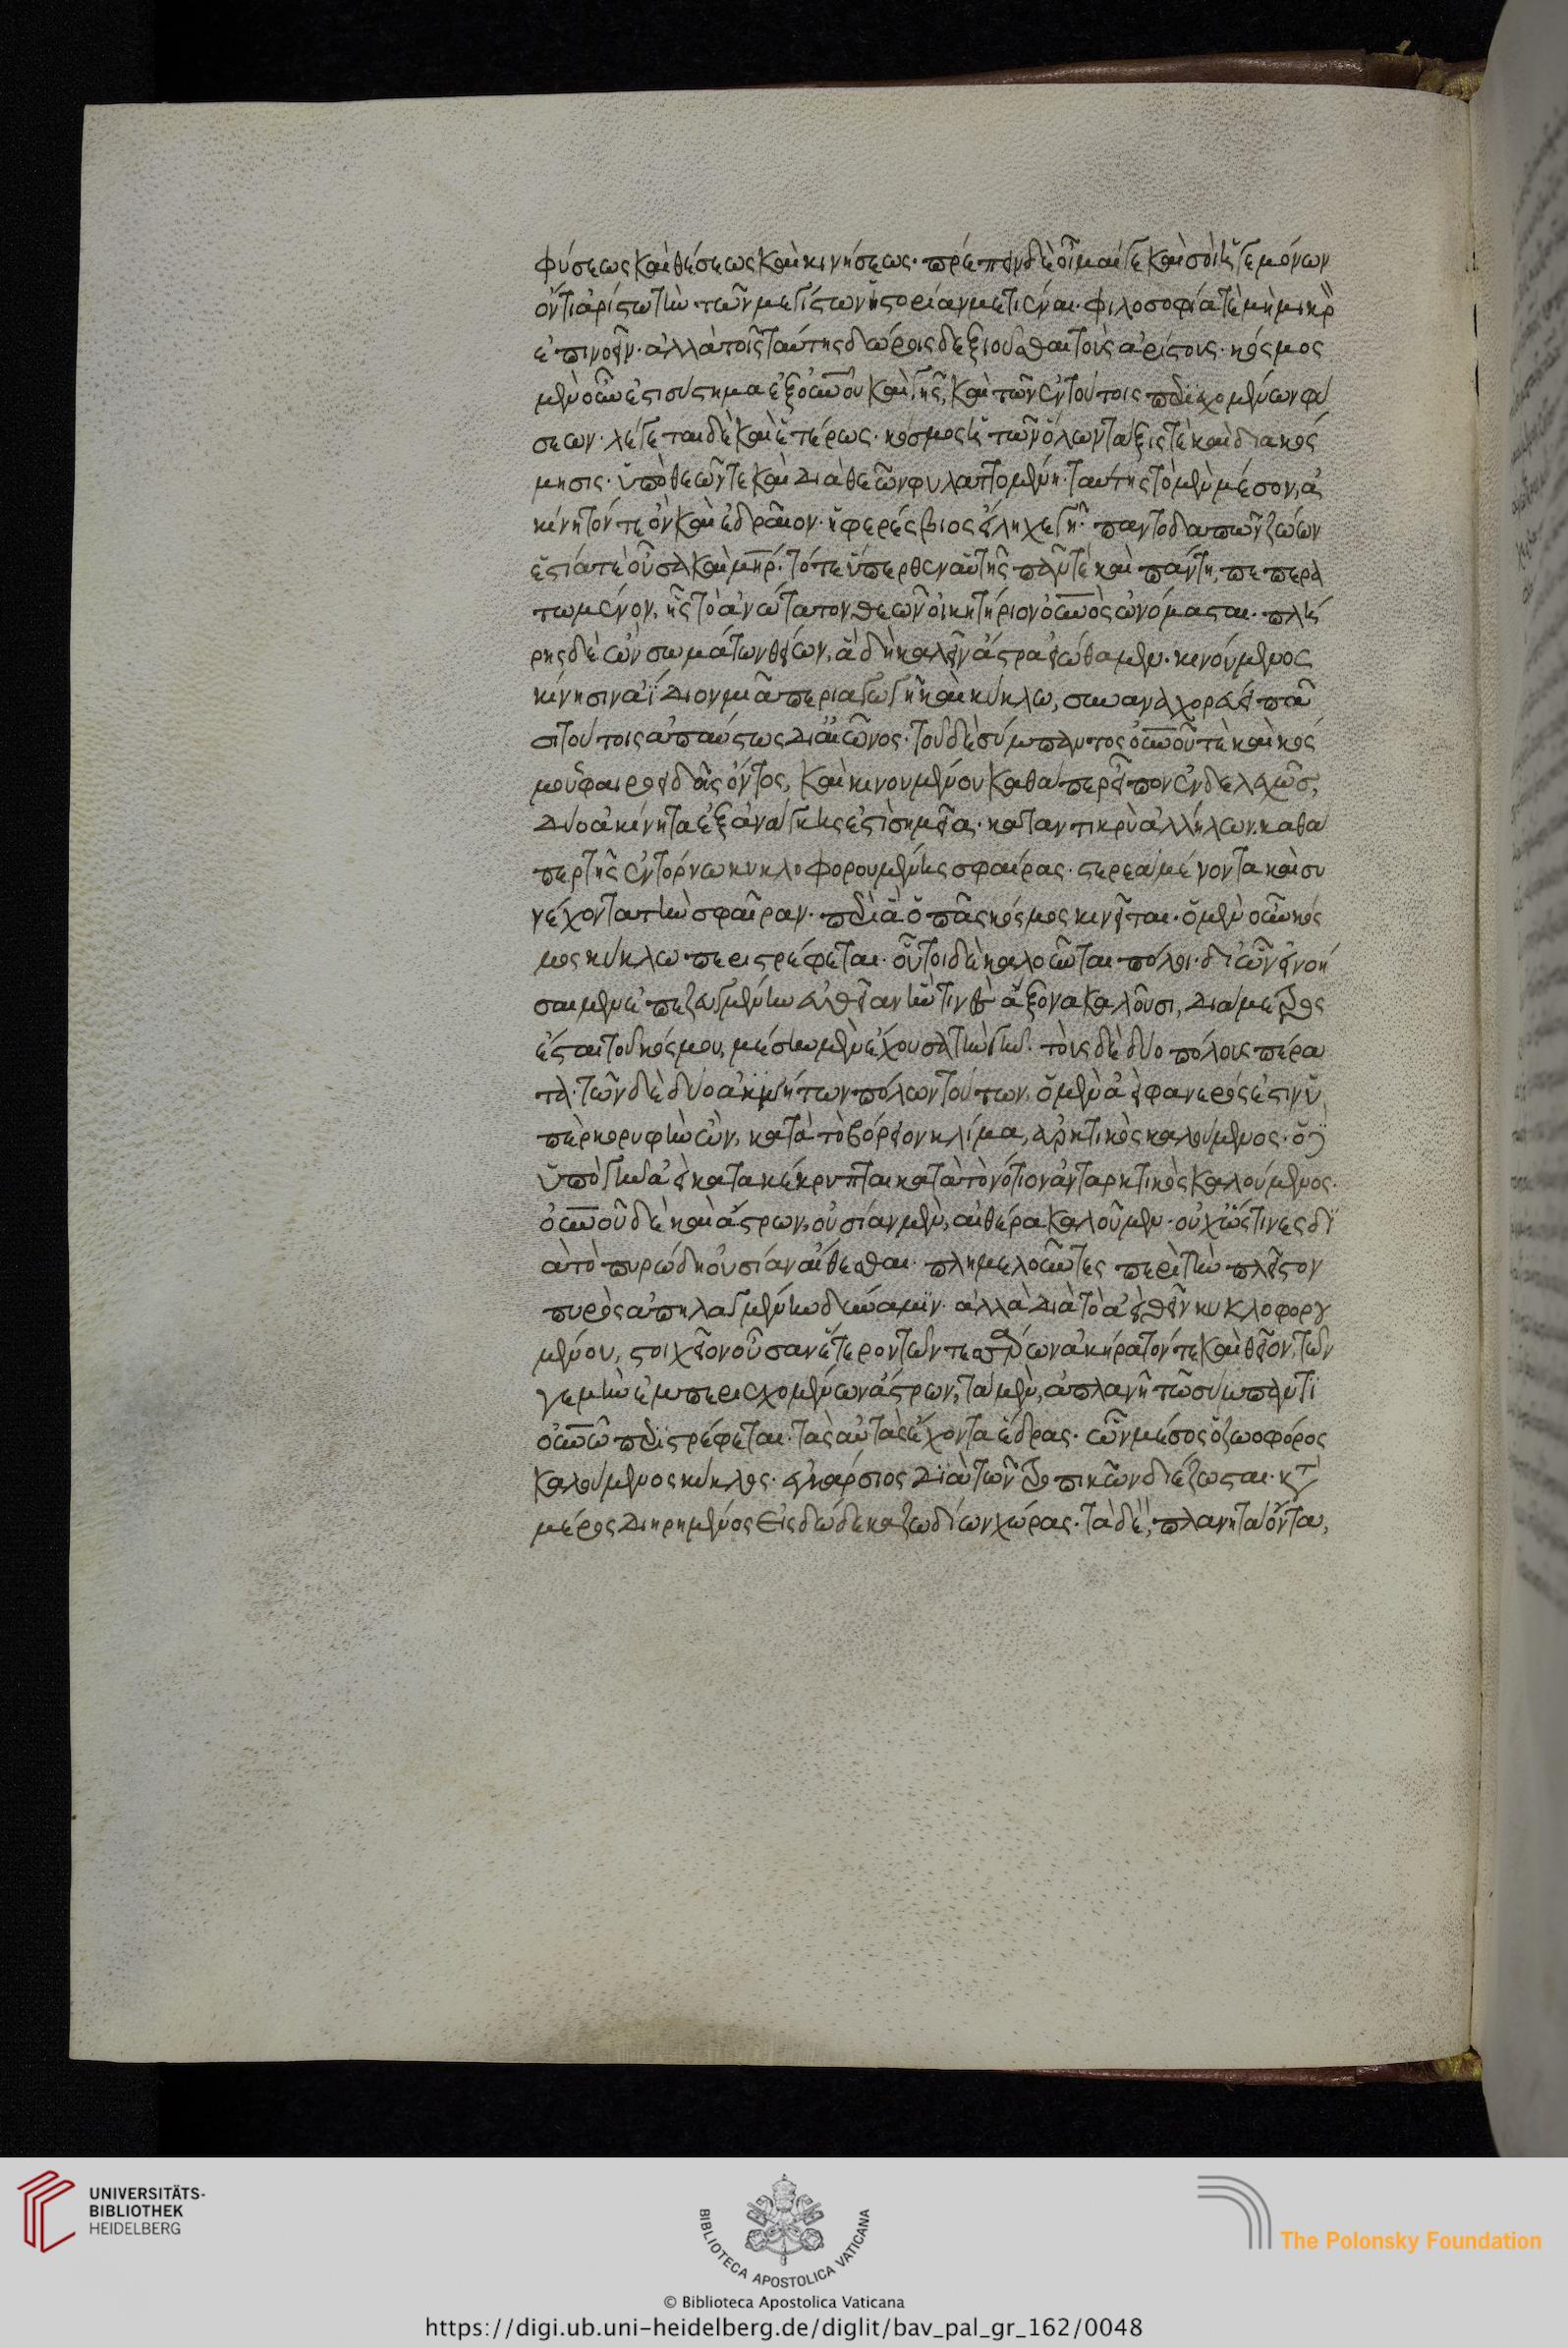 φύσεως καὶ θέσεως καὶ κινήσεως· πρέπειν δὲ οἶμαί γε καὶ σοὶ ἡγεμόνων
ὄντι ἀρίστω τὴν τῶν μεγίστων ἱστορίαν μετιέναι· φιλοσοφία τὲ μὴ μικρὰ
ἐπινοεῖν· ἀλλὰ τοῖς ταύτης δώροις δεξιοῦσθαι τοὺς ἀρίστους· κόσμος
μὲν οὖν ἐστι σύστημα ἐξ οὐνοῦ καὶ γῆς, καὶ τῶν ἐν τούτοις περιεχομένων φύ
σεων· λέγεται δὲ καὶ ἑτέρως· κόσμος ἡ τῶν ὅλων τάξις τὲ καὶ διακόσ
μησις· ὑπὸ θεῶν τε καὶ διὰ θεῶν φυλαττομένη· ταύτης τὸ μὲν μέσον, ἀ
κίνητόν τε ὂν καὶ ἑδραῖον· ἡ φερέσβιος εἴληχε γῆ· παντοδαπῶν ζώων
ἑστία τὲ οὖσα καὶ μηρ· τό τε ὕπερθεν αὐτῆς πᾶν τὲ καὶ πάντη, πεπερα
τωμένον, ἧς τὸ ἀνώτατον θεῶν οἰκητήριον οὐνὸς ὠνόμασται· πλή
ρης δὲ ὢν σωμάτων θείων, ἃ δὴ καλεῖν ἄστρα εἰώθαμεν· κινούμενος
κίνησιν ἀΐδιον μιᾶ περιαγωγῆ καὶ κύκλω, συναναχορεύει πᾶ
σι τούτοις ἀπαύστως δι' αἰῶνος· τοῦ δὲ σύμπαντος οὐνοῦ τὲ καὶ κόσ
μου σφαιροειδοῦς ὄντος, καὶ κινουμένου καθάπερ εἶπον ἐνδελεχῶς,
δύο ἀκίνητα ἐξ ἀνάγκης ἐστὶ σημεῖα· καταντικρὺ ἀλλήλων, καθά
περ τῆς ἐν τόρνω κυκλοφορουμένης σφαίρας· στερεὰ μένοντα καὶ συ
νέχοντα τὴν σφαῖραν· περὶ ἃ ὁ πᾶς κόσμος κινεῖται· ὁ μὲν οὖν κόσ
μος κύκλω περιστρέφεται· οὗτοι δὲ καλοῦνται πόλοι· δι' ὧν εἰ νοή
σαιμεν ἐπεζευγμένην εὐθεῖαν ἥν τινες ἄξονα καλοῦσι, διάμετρος
ἔσται τοῦ κόσμου, μέσην μὲν ἔχουσα τὴν γῆν· τοὺς δὲ δύο πόλους πέρα
τα· τῶν δὲ δύο ἀκινήτων πόλων τούτων, ὁ μὲν ἀεὶ φανερός ἐστιν ὑ
πὲρ κορυφὴν ὢν, κατὰ τὸ βόρειον κλίμα, ἀρκτικὸς καλούμενος· ὁ δὲ
ὑπὸ γῆν ἀεὶ κατακέκρυπται κατὰ τὸ νότιον ἀνταρκτικὸς καλούμενος·
οὐνοῦ δὲ καὶ ἄστρων, οὐσίαν μὲν, αἰθέρα καλοῦμεν· οὐχ ὥς τινες δι
ὰ τὸ πυρώδη οὐσίαν αἴθεσθαι· πλημελοῦντες περὶ τὴν πλεῖστον
πυρὸς ἀπηλαγμένην δύναμιν· ἀλλὰ διὰ τὸ ἀεὶ θεῖν κυκλοφορου
μένου, στοιχεῖον οὖσαν ἕτερον τῶν τεσσάρων ἀκήρατόν τε καὶ θεῖον, τῶν
γε μὴν ἐμπεριεχομένων ἄστρων, τὰ μὲν, ἀπλανῆ τῶ σύμπαντι
οὐνῶ περιστρέφεται· τὰς αὐτὰς ἔχοντα ἕδρας· ὧν μέσος ὁ ζωοφόρος
καλούμενος κύκλος· ἐγκάρσιος διὰ τῶν τροπικῶν διέζωσται· κτ
μέρος διηρημένος εἰς δώδεκα ζωδίων χώρας· τὰ δὲ, πλανητὰ ὄντα,
UNIVERSITÄTS-
BIBLIOTHEK
HEIDELBERG
BIBLIOTECA APOSTOLICA VATICANA
The Polonsky Foundation
© Biblioteca Apostolica Vaticana
https://digi.ub.uni-heidelberg.de/diglit/bav_pal_gr_162/0048